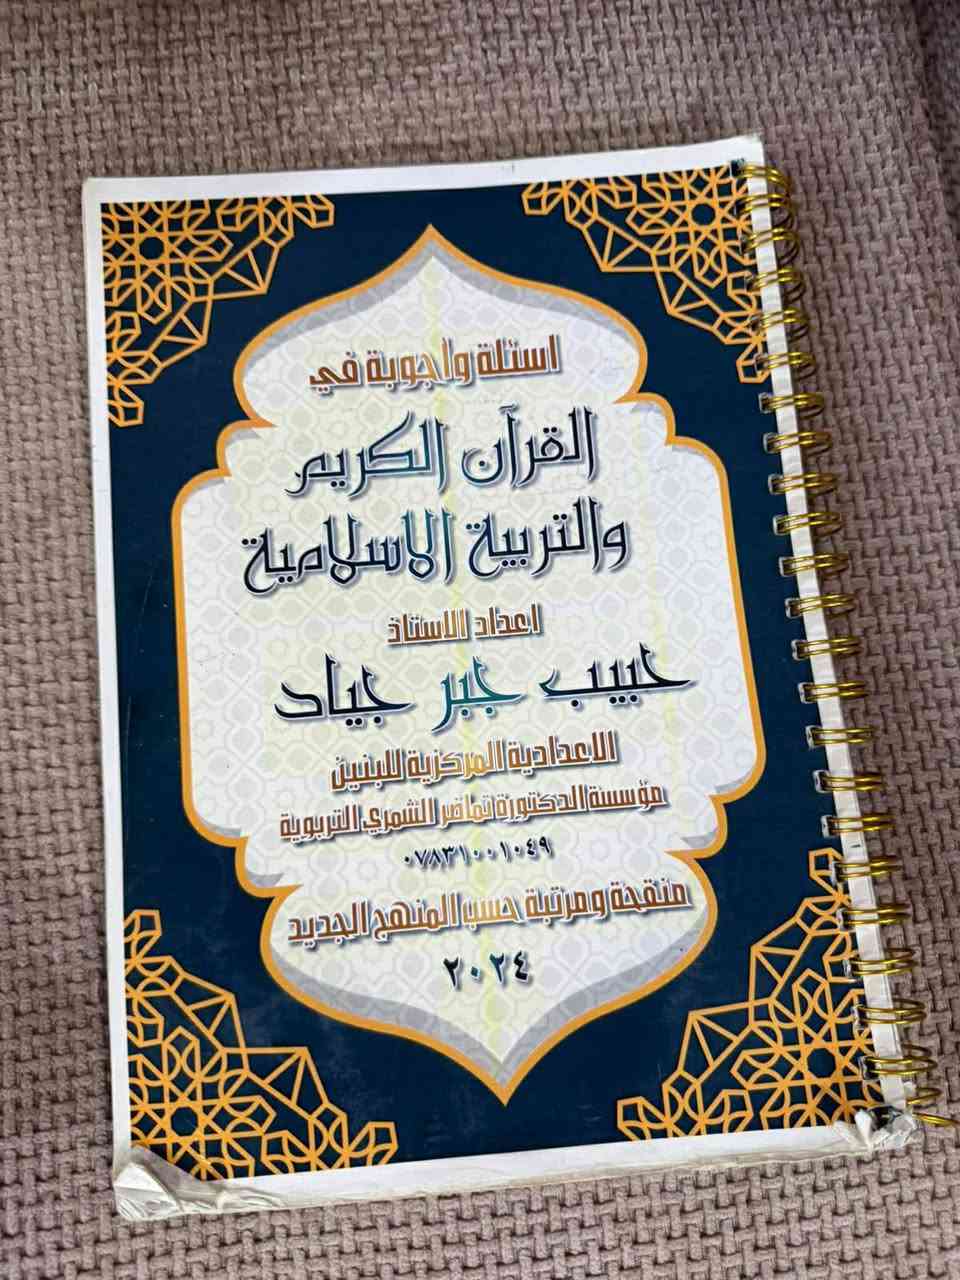 اسئلة واجوبة في
القرآن الكريم
والتربية الاسلامية
اعداد الاستاذ
حبيب جبر جياد
الاعدادية المركزية للبنين
مؤسسة الدكتورة تماضر الشمري التربوية
٠٧٨٣١٠٠١٠٤٩
منقحة ومرتبة حسب المنهج الجديد
٢٠٢٤